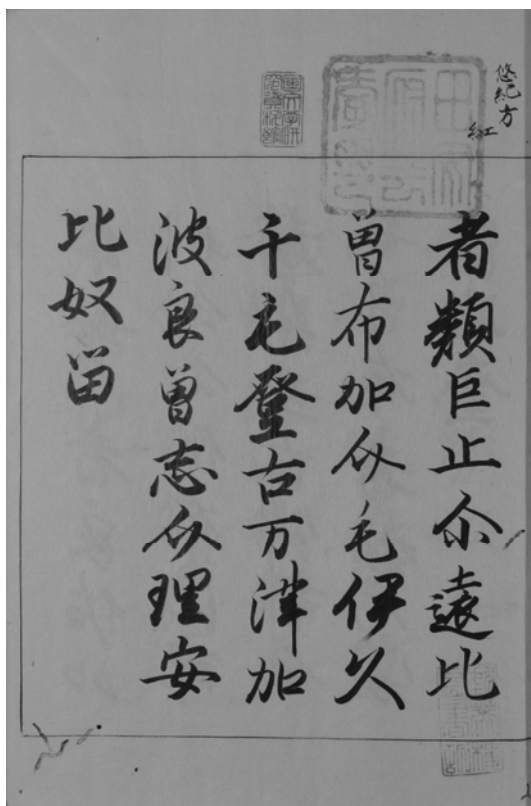 悠紀方
紅
者類巨止尓遠比
曽布加介毛伊久
千毛登古万津加
波良曽志介理安
比奴留